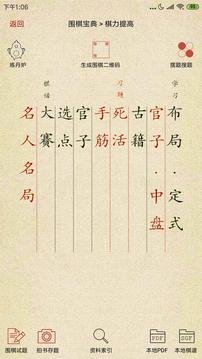 下午1:06
返回
围棋宝典 > 棋力提高
炼丹炉
生成围棋二维码
摆题搜题
学习
布局·定式
官子·中盘
习题
古籍
死活
手筋
官子
选点
棋谱
大赛
名人名局
围棋试题
拍书存题
资料索引
PDF
本地PDF
SGF
本地棋谱